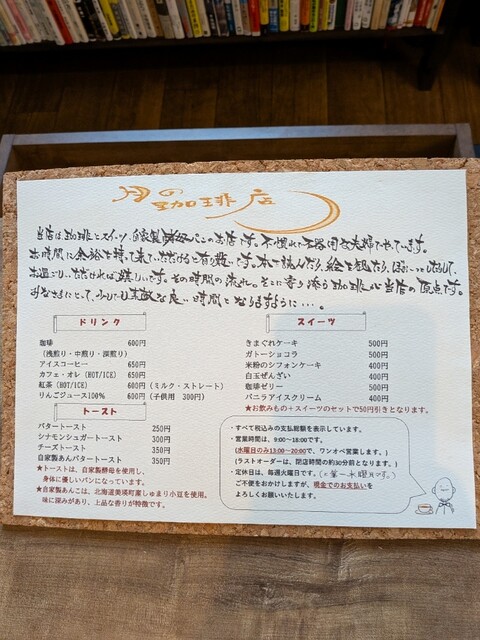 月の
珈琲店
当店は、珈琲とスイーツ、自家製酵母パンのお店です。不慣れで不器用な夫婦でやっています。
お時間に余裕を持って来ていただけると有り難いです。本を読んだり、絵を観たり、ぼーっとしたりして、
お過ごしいただければ嬉しいです。その時間の流れと、そこに寄り添う珈琲が当店の原点です。
みなさまにとって、少しでも素敵な良い時間となりますように…。
ドリンク
珈琲 600円
(浅煎り・中煎り・深煎り)
アイスコーヒー 650円
カフェ・オレ(HOT/ICE) 650円
紅茶(HOT/ICE) 600円(ミルク・ストレート)
りんごジュース100% 600円(子供用 300円)
トースト
バタートースト 250円
シナモンシュガートースト 300円
チーズトースト 350円
自家製あんバタートースト 350円
★トーストは、自家製酵母を使用し、
身体に優しいパンになっています。
★自家製あんこは、北海道美瑛町産しゅまり小豆を使用。
味に深みがあり、上品な香りが特徴です。
スイーツ
きまぐれケーキ 500円
ガトーショコラ 500円
米粉のシフォンケーキ 400円
白玉ぜんざい 400円
珈琲ゼリー 500円
バニラアイスクリーム 400円
★お飲みもの+スイーツのセットで50円引きとなります。
・すべて税込みの支払総額を表示しています。
・営業時間は、9:00~18:00です。
(水曜日のみ13:00~20:00で、ワンオペ営業します。)
(ラストオーダーは、閉店時間の約30分前となります。)
・定休日は、毎週火曜日です。
ご不便をおかけしますが、現金でのお支払いを
よろしくお願いいたします。